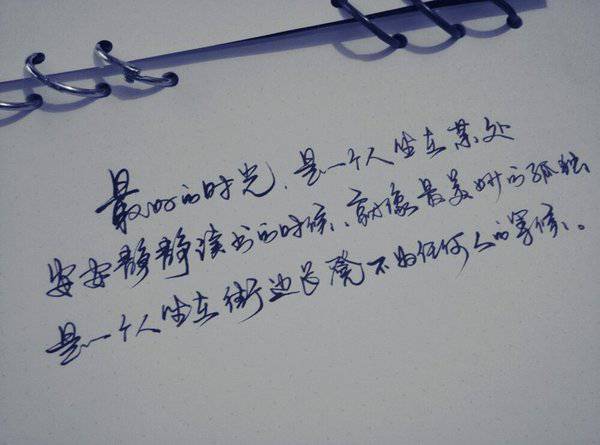 最好的时光,是一个人坐在某处
安安静静读书的时候、就像最美妙的孤独
是一个人坐在街边长凳不为任何人的等候。